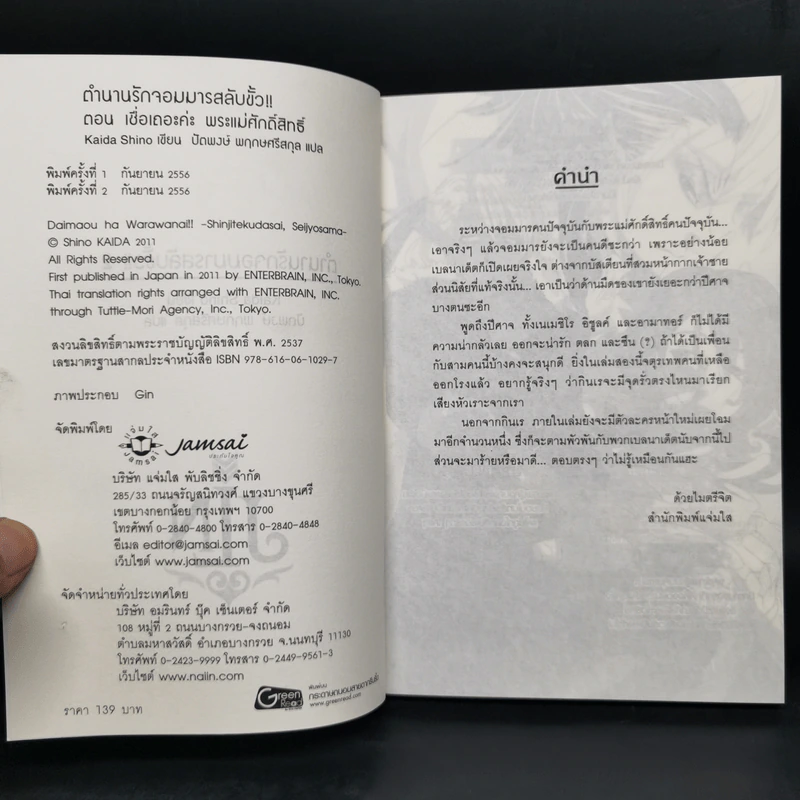 ตำนานรักจอมมารสลับขั้ว!!
ตอน เชื่อเถอะค่ะ พระแม่ศักดิ์สิทธิ์
Kaida Shino เขียน ปัดพงษ์ พฤกษศรีสกุล แปล
พิมพ์ครั้งที่ 1 กันยายน 2556
พิมพ์ครั้งที่ 2 กันยายน 2556
Daimaou ha Warawanai!! -Shinjitekudasai, Seijyosama-
© Shino KAIDA 2011
All Rights Reserved.
First published in Japan in 2011 by ENTERBRAIN, INC., Tokyo.
Thai translation rights arranged with ENTERBRAIN, INC.
through Tuttle-Mori Agency, Inc., Tokyo.
สงวนลิขสิทธิ์ตามพระราชบัญญัติลิขสิทธิ์ พ.ศ. 2537
เลขมาตรฐานสากลประจำหนังสือ ISBN 978-616-06-1029-7
ภาพประกอบ Gin
จัดพิมพ์โดย
แจ่มใส
JAMSAI
Jamsai
บริษัท แจ่มใส พับลิชชิ่ง จำกัด
285/33 ถนนจรัญสนิทวงศ์ แขวงบางขุนศรี
เขตบางกอกน้อย กรุงเทพฯ 10700
โทรศัพท์ 0-2840-4800 โทรสาร 0-2840-4848
อีเมล editor@jamsai.com
เว็บไซต์ www.jamsai.com
จัดจำหน่ายทั่วประเทศโดย
บริษัท อมรินทร์ บุ๊ค เซ็นเตอร์ จำกัด
108 หมู่ที่ 2 ถนนบางกรวย-จงถนอม
ตำบลมหาสวัสดิ์ อำเภอบางกรวย จ.นนทบุรี 11130
โทรศัพท์ 0-2423-9999 โทรสาร 0-2449-9561-3
เว็บไซต์ www.naiin.com
Green Read
พิมพ์บน
กระดาษถนอมสายตากรีนรี้ด
www.greenread.com
ราคา 139 บาท
คำนำ
ระหว่างจอมมารคนปัจจุบันกับพระแม่ศักดิ์สิทธิ์คนปัจจุบัน...
เอาจริงๆ แล้วจอมมารยังจะเป็นคนดีซะกว่า เพราะอย่างน้อย
เบลนาเด็ตก็เปิดเผยจริงใจ ต่างจากบัสเตียนที่สวมหน้ากากเจ้าชาย
ส่วนนิสัยที่แท้จริงนั้น... เอาเป็นว่าด้านมืดของเขายังเยอะกว่าปีศาจ
บางตนซะอีก
พูดถึงปีศาจ ทั้งเนเมซิโร อิซูลค์ และอามาทอร์ ก็ไม่ได้มี
ความน่ากลัวเลย ออกจะน่ารัก ตลก และซึน (?) ถ้าได้เป็นเพื่อน
กับสามคนนี้บ้างคงจะสนุกดี ยิ่งในเล่มสองนี้จตุรเทพคนที่เหลือ
ออกโรงแล้ว อยากรู้จริงๆ ว่ากินเรจะมีจุดรั่วตรงไหนมาเรียก
เสียงหัวเราะจากเรา
นอกจากกินเร ภายในเล่มยังจะมีตัวละครหน้าใหม่เผยโฉม
มาอีกจำนวนหนึ่ง ซึ่งก็จะตามพัวพันกับพวกเบลนาเด็ตนับจากนี้ไป
ส่วนจะมาร้ายหรือมาดี... ตอบตรงๆ ว่าไม่รู้เหมือนกันแฮะ
ด้วยไมตรีจิต
สำนักพิมพ์แจ่มใส